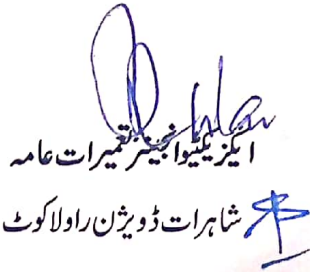 ایگزیکٹیو انجینئر تعمیرات عامہ
شاہرات ڈویژن راولاکوٹ